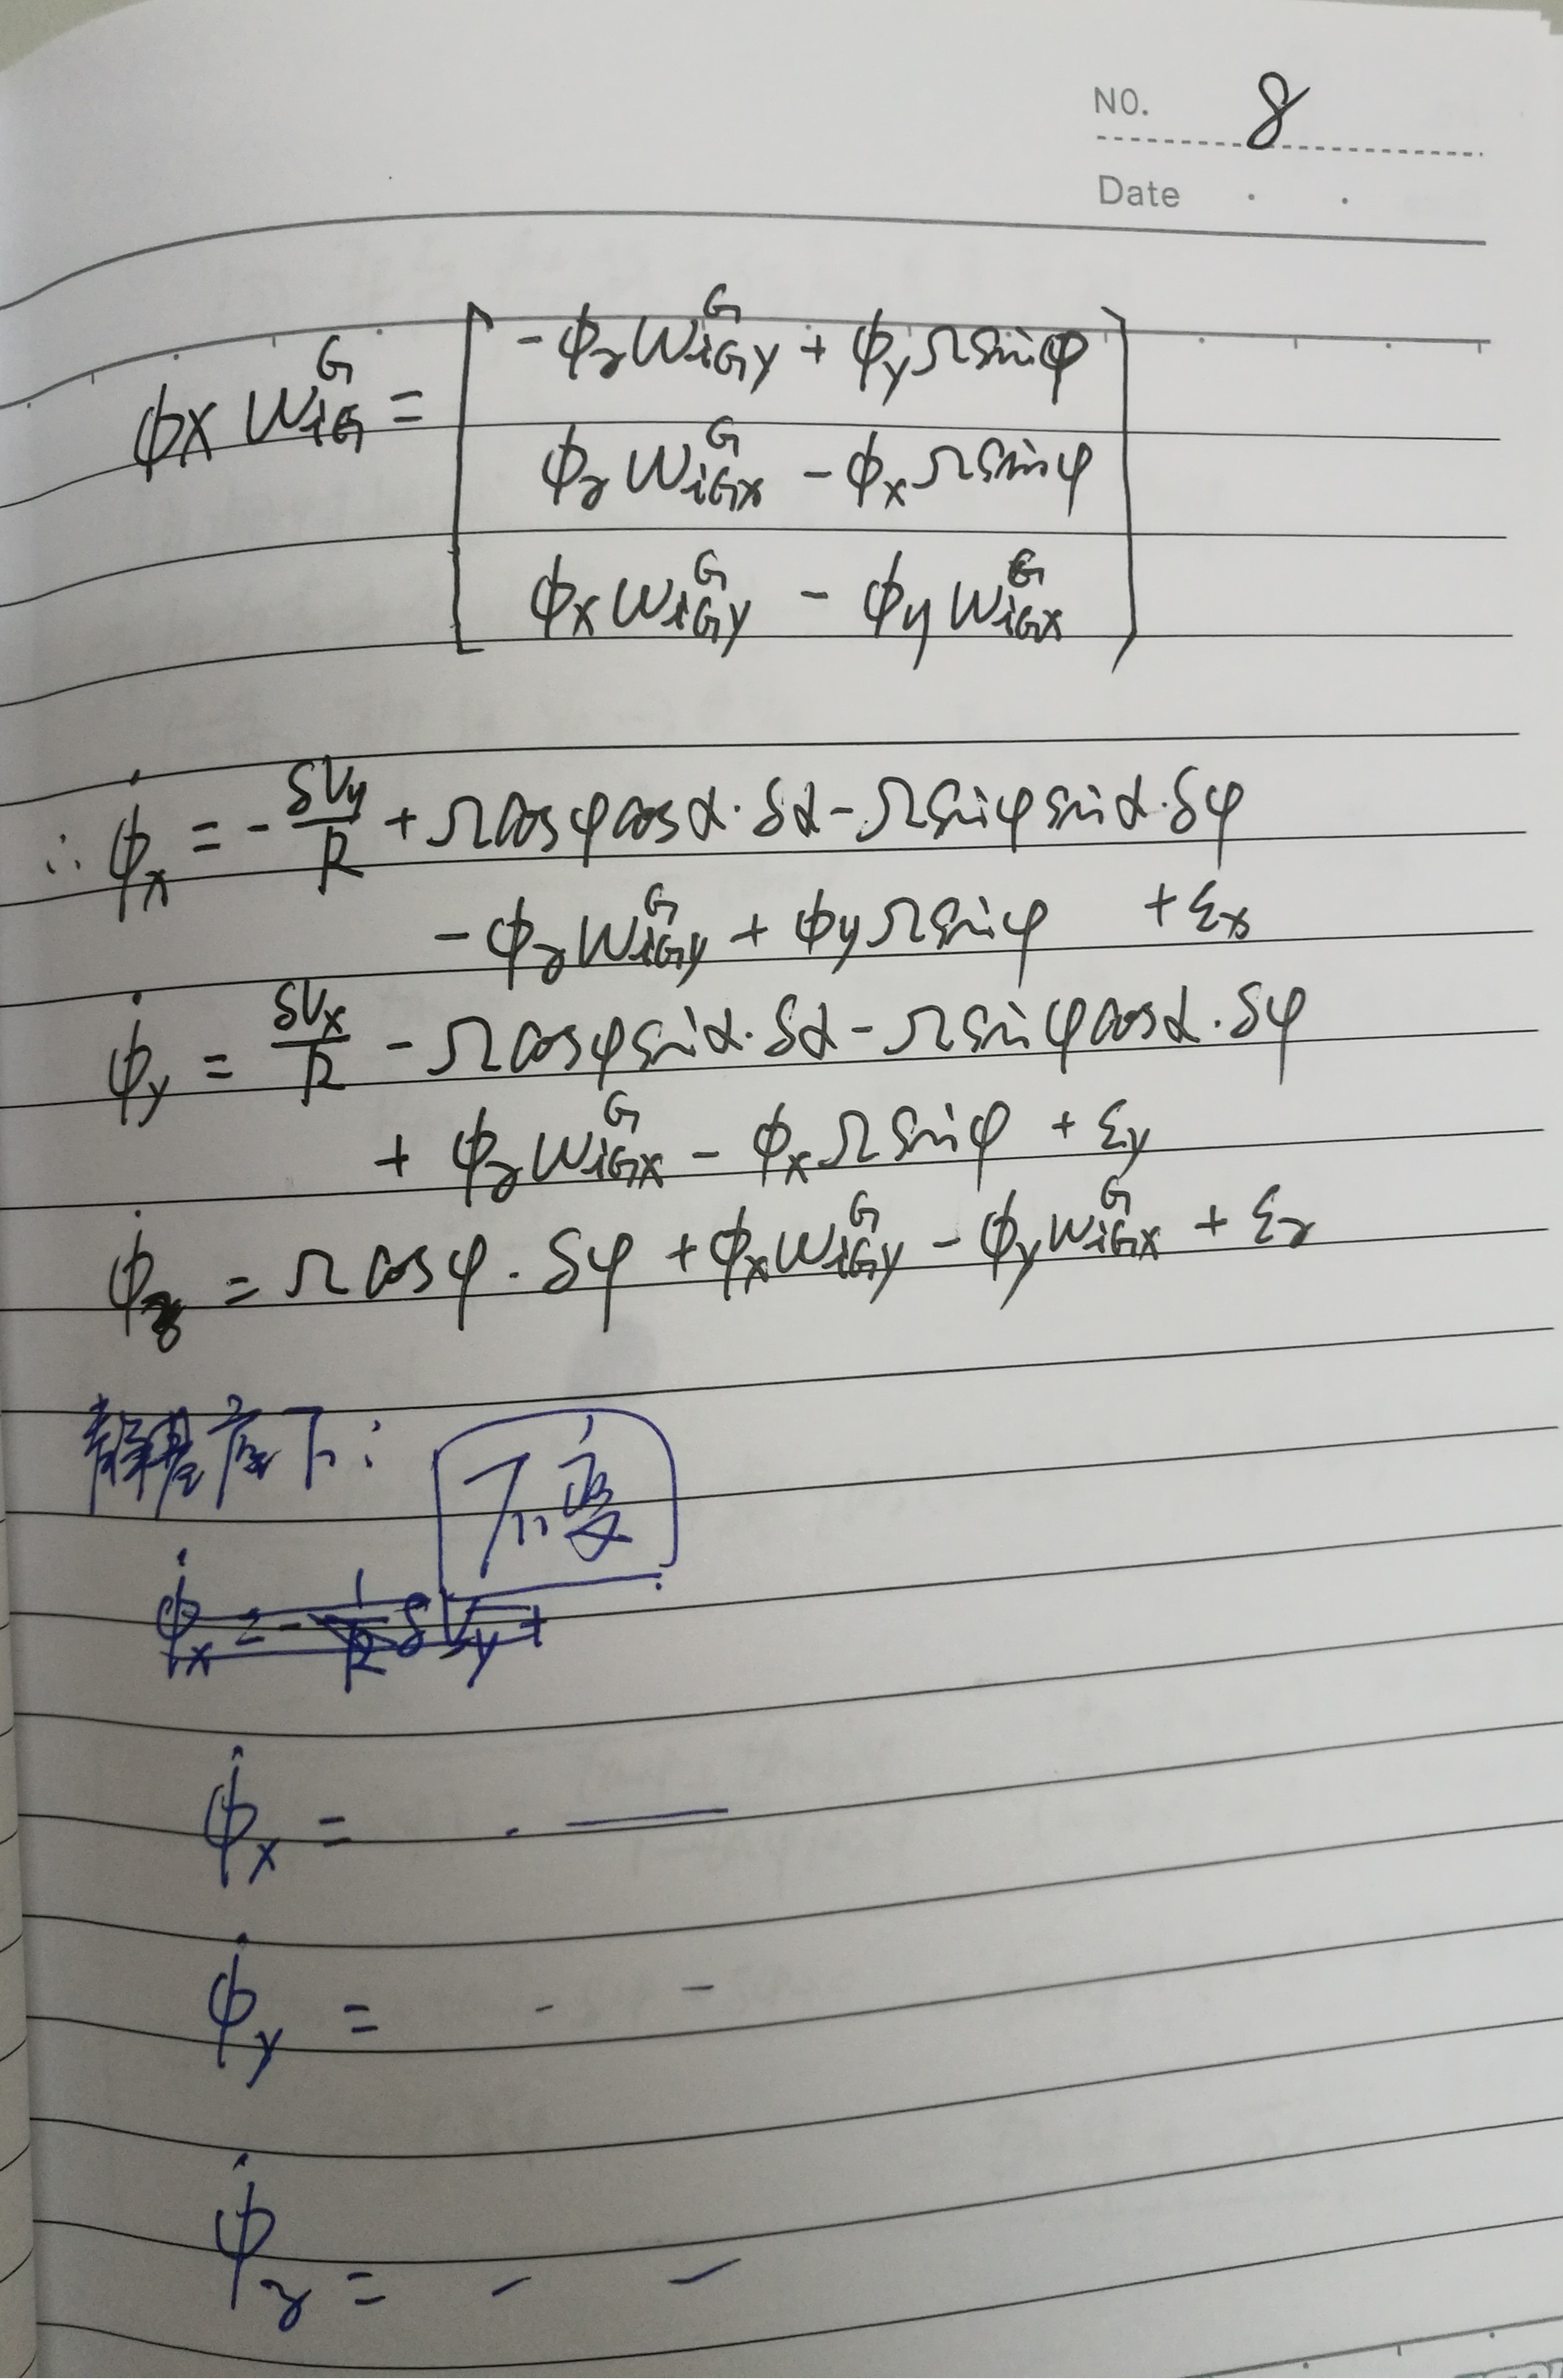 NO. 8
Date . .
ϕ× W_{iG}^{G} = [ -ϕ_z W_{iGy}^{G} + ϕ_y Ω sinφ
ϕ_z W_{iGx}^{G} - ϕ_x Ω sinφ
ϕ_x W_{iGy}^{G} - ϕ_y W_{iGx}^{G} ]
∴ ϕ̇_x = - δV_y/R + Ω cosφ cosα·δα - Ω sinφ sinα·δφ
- ϕ_z W_{iGy}^{G} + ϕ_y Ω sinφ + ε_x
ϕ̇_y = δV_x/R - Ω cosφ sinα·δα - Ω sinφ cosα·δφ
+ ϕ_z W_{iGx}^{G} - ϕ_x Ω sinφ + ε_y
ϕ̇_z = Ω cosφ·δφ + ϕ_x W_{iGy}^{G} - ϕ_y W_{iGx}^{G} + ε_z
静基座下:
不变
ϕ̇_x = - 1/R δV_y +
ϕ̇_x = . —
ϕ̇_y = - -
ϕ̇_z = - -